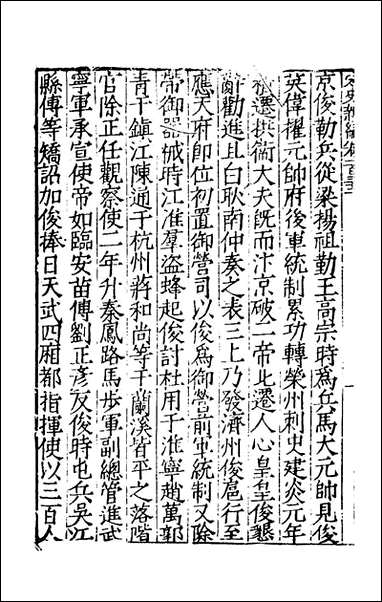 宋史新編卷一百三十二
京俊勒兵從梁揚祖勤王高宗時為兵馬大元帥見俊
英偉擢元帥府後軍統制累功轉榮州刺史建炎元年
遷拱衞大夫既而汴京破二帝北遷人心皇皇俊懇
辭勸進且白耿南仲奏之表三上乃發濟州俊扈行至
應天府即位初置御營司以俊為御營前軍統制又除
帶御器械時江淮羣盜蜂起俊討杜用于淮寧趙萬郭
青于鎮江陳通于杭州蔣和尚等于蘭溪皆平之落階
官除正任觀察使二年升秦鳳路馬步軍副總管進武
寧軍承宣使帝如臨安苗傅劉正彥反俊時屯兵吳江
縣傅等矯詔加俊捧日天武四廂都指揮使以三百人